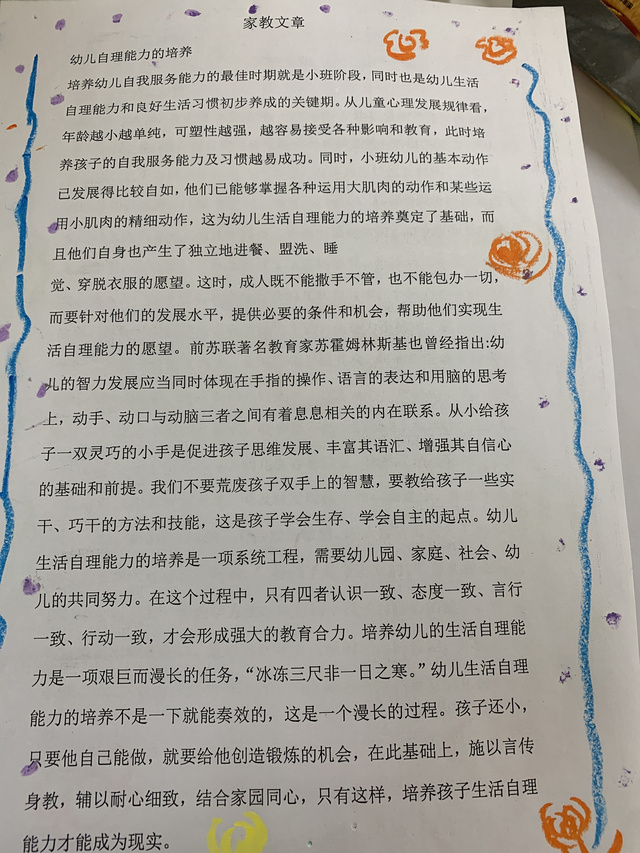 家教文章
幼儿自理能力的培养
培养幼儿自我服务能力的最佳时期就是小班阶段，同时也是幼儿生活
自理能力和良好生活习惯初步养成的关键期。从儿童心理发展规律看，
年龄越小越单纯，可塑性越强，越容易接受各种影响和教育，此时培
养孩子的自我服务能力及习惯越易成功。同时，小班幼儿的基本动作
已发展得比较自如，他们已能够掌握各种运用大肌肉的动作和某些运
用小肌肉的精细动作，这为幼儿生活自理能力的培养奠定了基础，而
且他们自身也产生了独立地进餐、盟洗、睡
觉、穿脱衣服的愿望。这时，成人既不能撒手不管，也不能包办一切，
而要针对他们的发展水平，提供必要的条件和机会，帮助他们实现生
活自理能力的愿望。前苏联著名教育家苏霍姆林斯基也曾经指出:幼
儿的智力发展应当同时体现在手指的操作、语言的表达和用脑的思考
上，动手、动口与动脑三者之间有着息息相关的内在联系。从小给孩
子一双灵巧的小手是促进孩子思维发展、丰富其语汇、增强其自信心
的基础和前提。我们不要荒废孩子双手上的智慧，要教给孩子一些实
干、巧干的方法和技能，这是孩子学会生存、学会自主的起点。幼儿
生活自理能力的培养是一项系统工程，需要幼儿园、家庭、社会、幼
儿的共同努力。在这个过程中，只有四者认识一致、态度一致、言行
一致、行动一致，才会形成强大的教育合力。培养幼儿的生活自理能
力是一项艰巨而漫长的任务，“冰冻三尺非一日之寒。”幼儿生活自理
能力的培养不是一下就能奏效的，这是一个漫长的过程。孩子还小，
只要他自己能做，就要给他创造锻炼的机会，在此基础上，施以言传
身教，辅以耐心细致，结合家园同心，只有这样，培养孩子生活自理
能力才能成为现实。